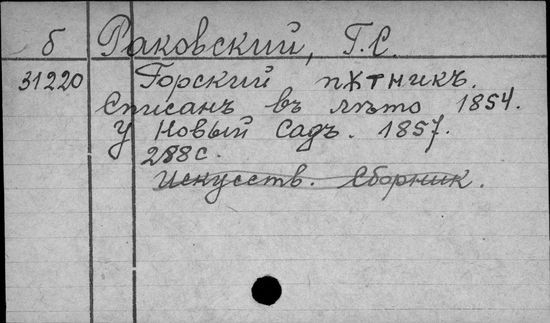 б Раковский, Г.С.
31220 Горский пѫтникъ.
Списанъ въ лѣто 1854.
У Новый Садъ. 1857.
288 с.
Искусств. Сборник.